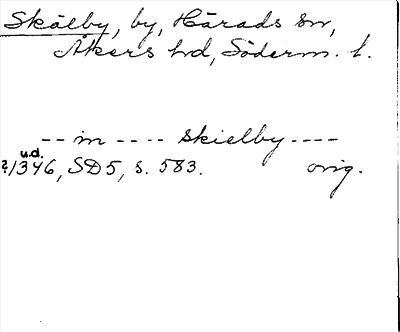 Skälby, by, Härads sn,
Åkers hd, Söderm. l.
-- in ---- skielby ----
u.d.
?1346, SD 5, s. 583. orig.